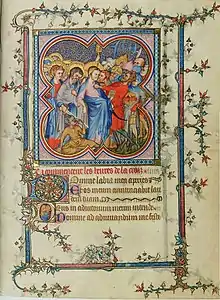 Cy commencent les heures de la croiz
Domine labia mea aperies
Et os meum annunciabit lau
dem tuam
Deus in adiutorium meum intende
Domine ad adiuvandum me festi